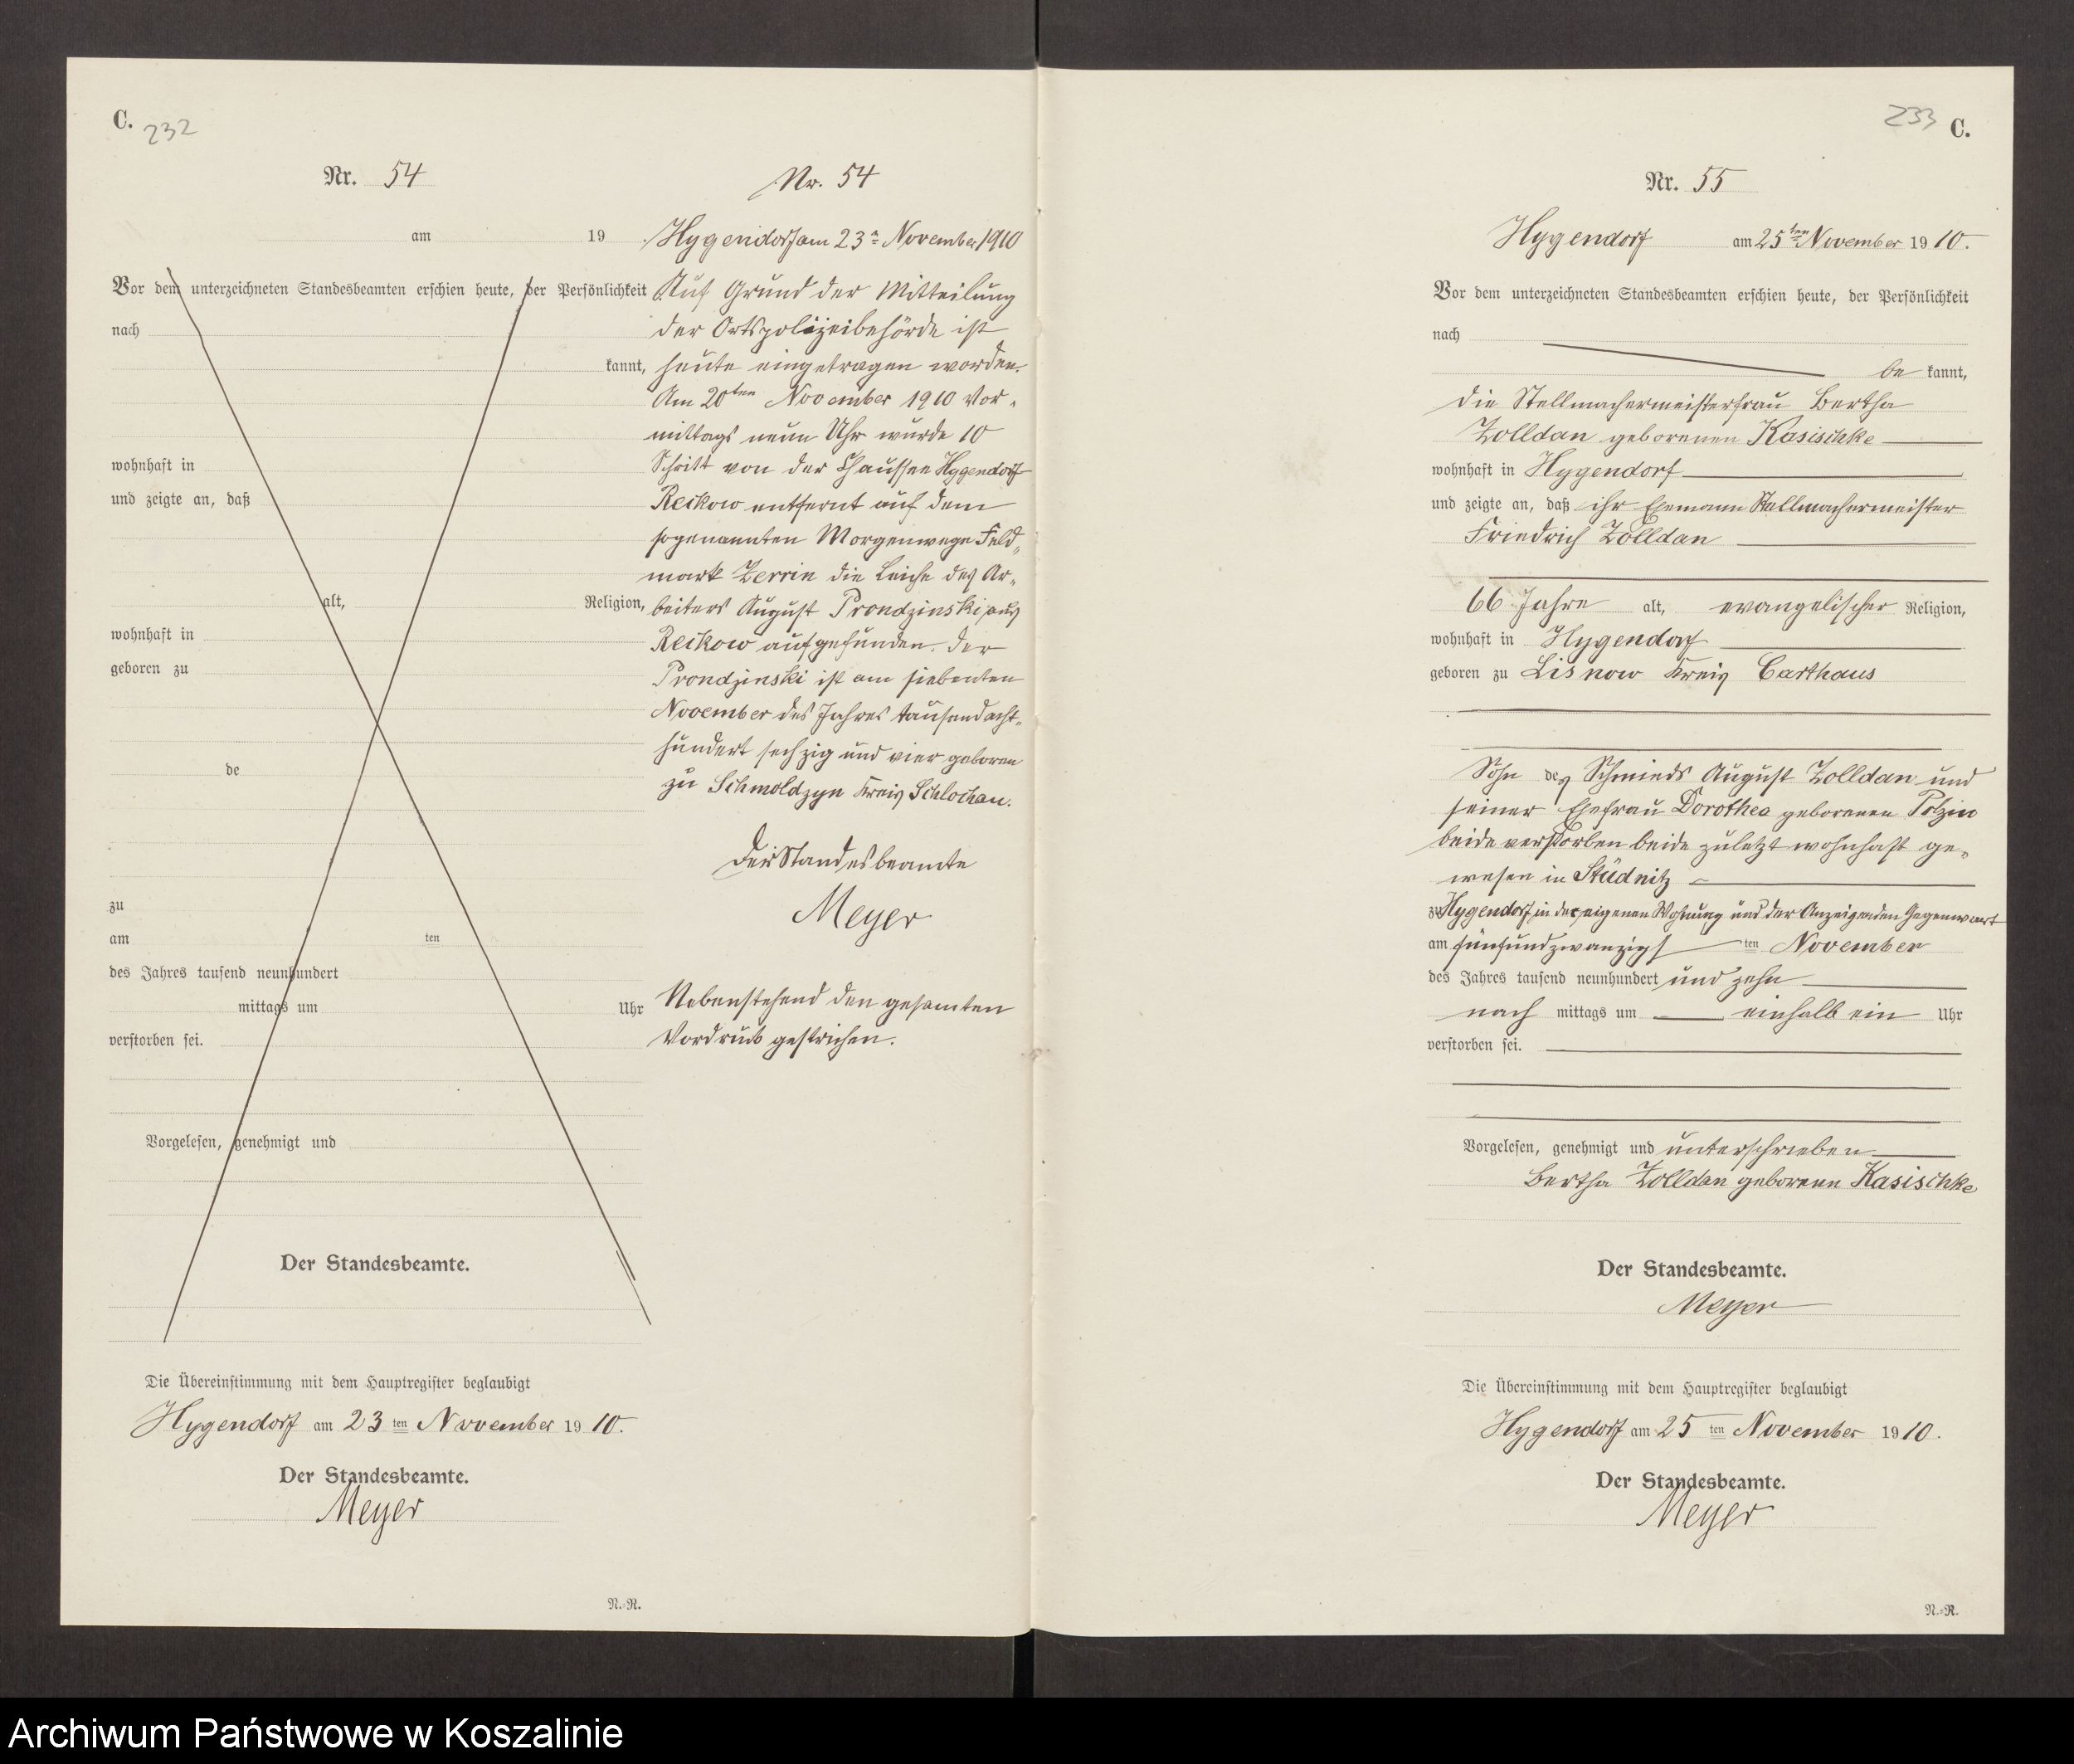 C. 232
Nr. 54
am 19
Vor dem unterzeichneten Standesbeamten erschien heute, der Persönlichkeit
nach
kannt,
wohnhaft in
und zeigte an, daß
alt, Religion,
wohnhaft in
geboren zu
de
zu
am ten
des Jahres tausend neunhundert
mittags um Uhr
verstorben sei.
Vorgelesen, genehmigt und
Der Standesbeamte.
Die Übereinstimmung mit dem Hauptregister beglaubigt
Hygendorf am 23 ten November 19 10.
Der Standesbeamte.
Meyer
N.-R.
Nr. 54
Hygendorf am 23 November 1910
Auf Grund der Mitteilung
der Ortspolizeibehörde ist
heute eingetragen worden.
Am 20ten November 1910 Vor-
mittags neun Uhr wurde 10
Schritt von der Chaussee Hygendorf
Reckow entfernt auf dem
sogenannten Morgenwege Feld-
mark Zerrin die Leiche des Ar-
beiters August Prondzinski aus
Reckow aufgefunden. Der
Prondzinski ist am siebenten
November des Jahres tausendacht-
hundert sechzig und vier geboren
zu Schmoldzyn Kreis Schlochau.
Der Standesbeamte
Meyer
Nebenstehend den gesamten
Vordruck gestrichen.
233 C.
Nr. 55
Hygendorf am 25ten November 19 10.
Vor dem unterzeichneten Standesbeamten erschien heute, der Persönlichkeit
nach
be kannt,
die Stellmachermeisterfrau Bertha
Zolldan geborenen Kasischke
wohnhaft in Hygendorf
und zeigte an, daß ihr Ehemann Stellmachermeister
Friedrich Zolldan
66 Jahre alt, evangelischer Religion,
wohnhaft in Hygendorf
geboren zu Lisnow Kreis Carthaus
Sohn des Schmieds August Zolldan und
seiner Ehefrau Dorothea geborenen Polzin
beide verstorben beide zuletzt wohnhaft ge-
wesen in Stüdnitz
zu Hygendorf in der eigenen Wohnung und der Anzeigenden Gegenwart
am fünfundzwanzigs ten November
des Jahres tausend neunhundert und zehn
nach mittags um einhalb ein Uhr
verstorben sei.
Vorgelesen, genehmigt und unterschrieben
Bertha Zolldan geborene Kasischke
Der Standesbeamte.
Meyer
Die Übereinstimmung mit dem Hauptregister beglaubigt
Hygendorf am 25 ten November 19 10.
Der Standesbeamte.
Meyer
N.-R.
Archiwum Państwowe w Koszalinie